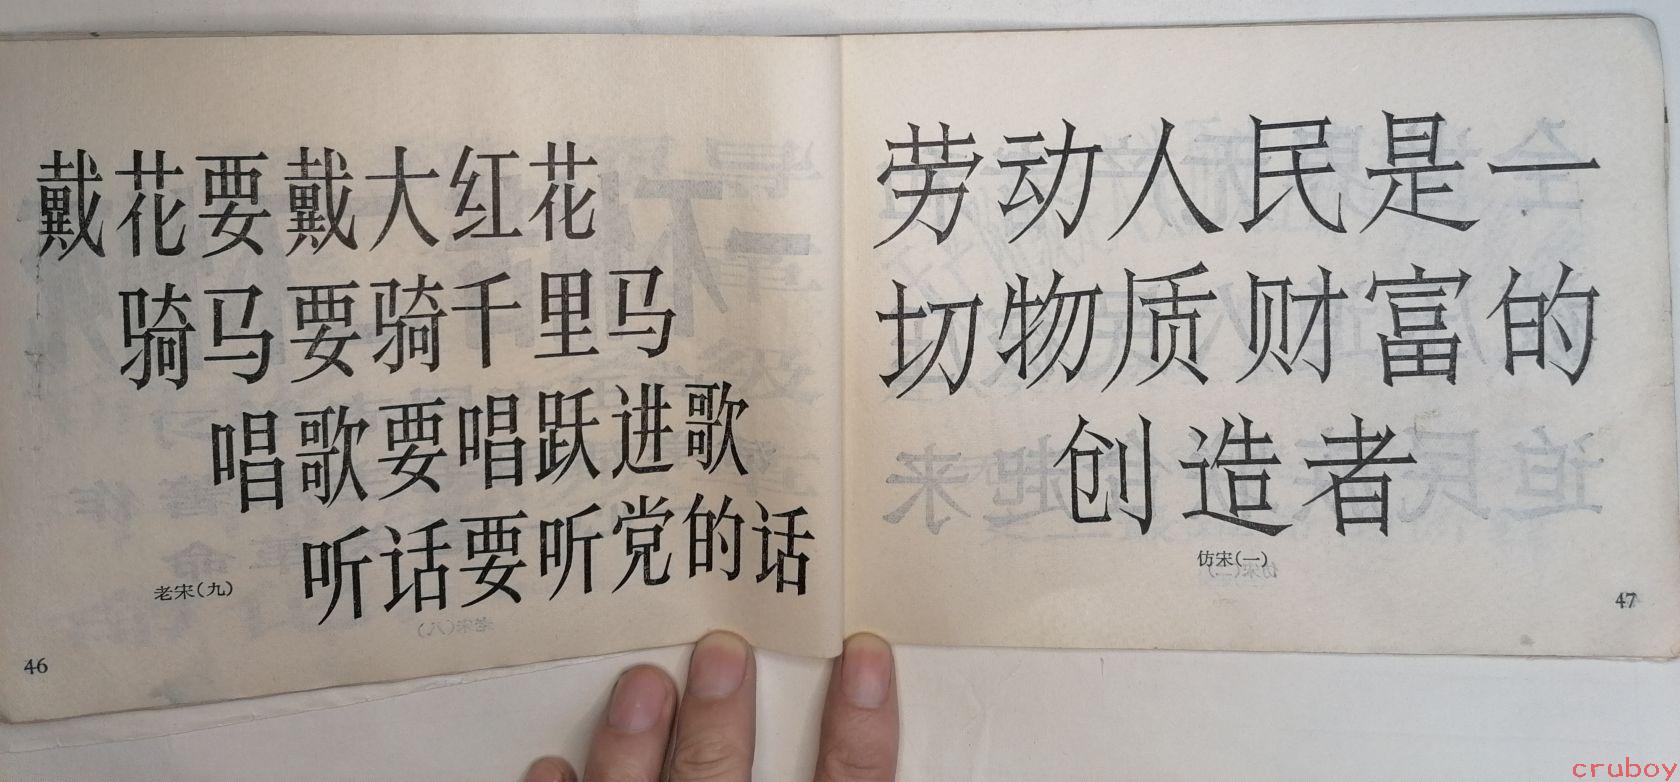 戴花要戴大红花
骑马要骑千里马
唱歌要唱跃进歌
听话要听党的话
老宋(九)
46
劳动人民是一
切物质财富的
创造者
仿宋(一)
47
cruboy